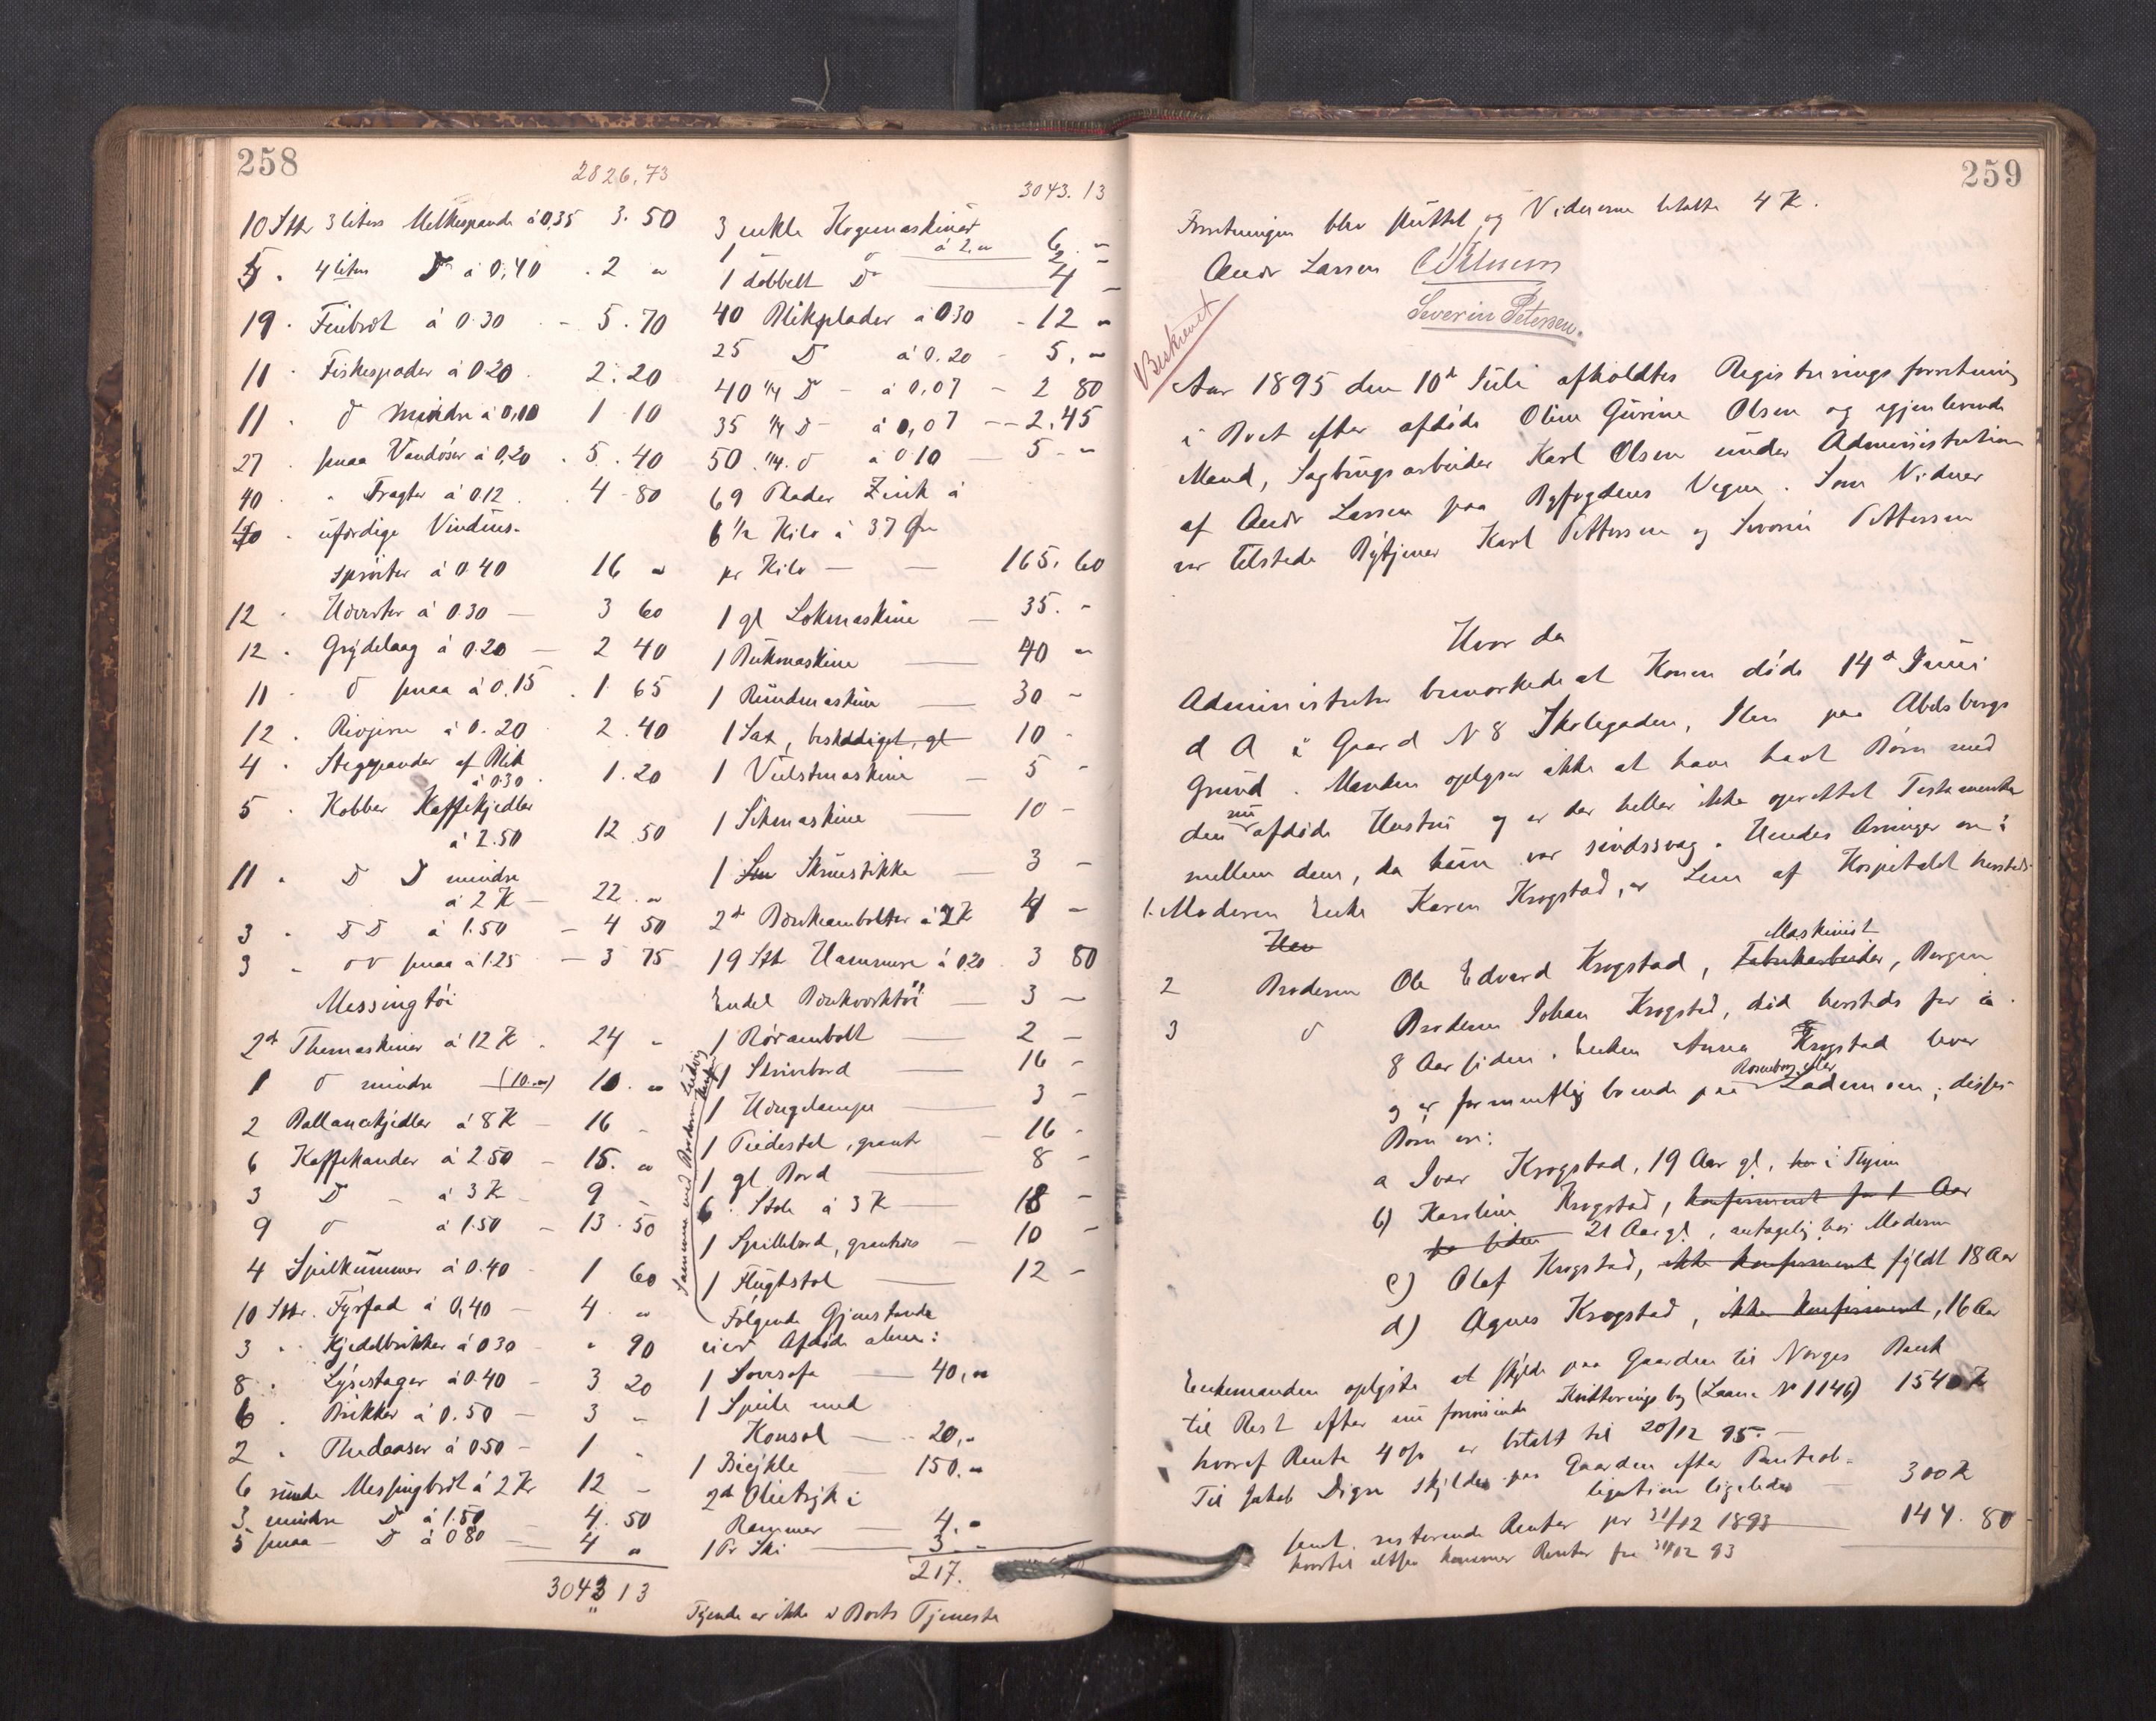 258
2826,73
10 Stk 3 liters Melkespande à 0,35 3.50
5 " 4 liters D à 0,40 . 2 "
19 . Finbrdt à 0.30 - 5.70
11 . Fiskespader à 0.20 2.20
11 . D mindre à 0,10 1 10
27 . smaa Vandöser à 0,20 . 5.40
40 . " Tragter à 0.12 . 4-80
40 . ufærdige Vindues-
à 0.40 16 "
12 . à 0.30 - 3 60
12 . Grydelaag à 0.20 - 2 40
11 . D smaa à 0.15 . 1.65
12 . Rivjern à 0.20 2.40
4 . Stegepander af Blik
à 0.30 . 1.20
5 . Kobber Kaffekjedler
à 2.50 12.50
11 . D D mindre
à 2 K - 22. "
3 . D D à 1.50 - 4 50
3 . D D smaa à 1.25 - 3 75
Messingtöi
2 Themaskiner à 12 K . 24 "
1 D mindre (10. ") 10. "
2 Ballancekjedler à 8 K - 16 -
6 Kaffekander à 2.50 - 15. "
3 D - à 3 K - 9 -
9 D à 1.50 - 13.50
4 Spilkummer à 0.40 - 1 60
10 Stk. Fyrfad à 0,40 - 4. "
3 " Kjedelbrikker à 0.30 - " 90
8 . Lysestager à 0.40 - 3 20
6 . Brikker à 0.50 - 3 -
2 . Thedaaser à 0.50 - 1 -
6 runde Messingbrdt à 2 Kr 12 -
3 mindre D à 1.50 - 4.50
5 smaa D à 0.80 - 4 "
3043 13
3043.13
3 enkle Kogemaskiner
à 2. " 6. -
1 dobbelt D 4 -
40 Blikplader à 0.30 - 12 "
25 D à 0.20 - 5. "
40 1/4 D - à 0,07 - 2 80
35 1/4 D - à 0,07 -- 2.45
50 1/4 D à 0.10 - 5 - "
69 Plader Zink à
6 1/2 Kilo à 37 Øre
pr Kilo - - 165.60
1 gl Lokmaskine - 35. -
1 Bukmaskine - 40 "
1 Rundmaskine - 30 -
1 Sax, beskadiget, gl 10 -
1 Vulstmaskine - 5 -
1 Sikmaskine - 10 -
1 Skruestikke - 3 -
2 Bænkeambolter à 2 K 4 -
19 Stk Hammere à 0.20 3 80
Endel - 3 -
1 Rörambolt - 2 -
1 Skrivebord - 16 -
1 Hængelampe - 3 -
1 Piedestal, - 16 -
1 gl Bord - 8 -
6 . Stole à 3 K - 18 -
1 Spillebord, - 10 -
1 Flugtstol - 12 -
Sammen med Broderen Ludvig
Følgende Gjenstande
eier Afdøde alene:
1 Sovesofa - 40, "
1 Speile med
Konsol - 20, -
1 Bicykle - 150. "
2 Olietryk i
Rammer - 4. "
1 Pr Ski - 3. -
217.
Tyende er ikke i Boets Tjeneste
259
Forretningen blev sluttet og Vidnerne betalte 4 K.
Andr Larsen
Severin Petersen.
Beskrevet
Aar 1895 den 10d Juli afholdtes Registreringsforretning
i Boet efter afdøde Oline Gurine Olsen og gjenlevende
Mand, Sagbrugsarbeider Karl Olsen under Administration
af Andr Larsen paa Byfogdens Vegne. Som Vidner
var tilstede Bytjener Karl Pettersen og Severin Pettersen
Hvor da
Administrator bemærkede at Konen døde 14d Juni
d A i Gaard N 8 Skolegaden, Ilen paa Abelsborgs
Grund. Manden oplyser ikke at have havt Børn med
den nu afdøde Hustru og er der heller ikke oprettet Testamente
mellem dem, da hun var sindssvag. Hendes Arvinger ere:
1. Moderen Enke Karen Krogstad, er Lem af Hospitalet hersteds
2 Broderen Ole Edvard Krogstad, Fabrikarbeider Maskinist, Bergen
3 D Broderen Johan Krogstad, død hersteds for ca.
8 Aar siden. Enken Anna Krogstad lever
og er formentlig boende paa Rosenborg eller Lademoen; disses
Børn ere:
a Ivar Krogstad, 19 Aar gl, i
b) Karoline Krogstad, konfirmeret for 1 Aar
siden 21 Aar gl, antagelig hos Moderen
c) Olaf Krogstad, ikke konfirmeret fyldt 18 Aar
d) Agnes Krogstad, ikke konfirmeret, 16 Aar
Enkemanden oplyste at skylde paa Gaarden til Norges Bank
til Rest efter nu foreviste Kvitteringsbog (Laane No 1146) 1540 K
hvoraf Rente 4 % er betalt til 20/12 95. -
Til Jakob Digre skyldes paa Gaarden efter Pantiob-
ligation ligeledes - 300 K
samt resterende Renter pr 31/12 1893 144.80
hvortil altsaa kommer Renter fra 31/12 93